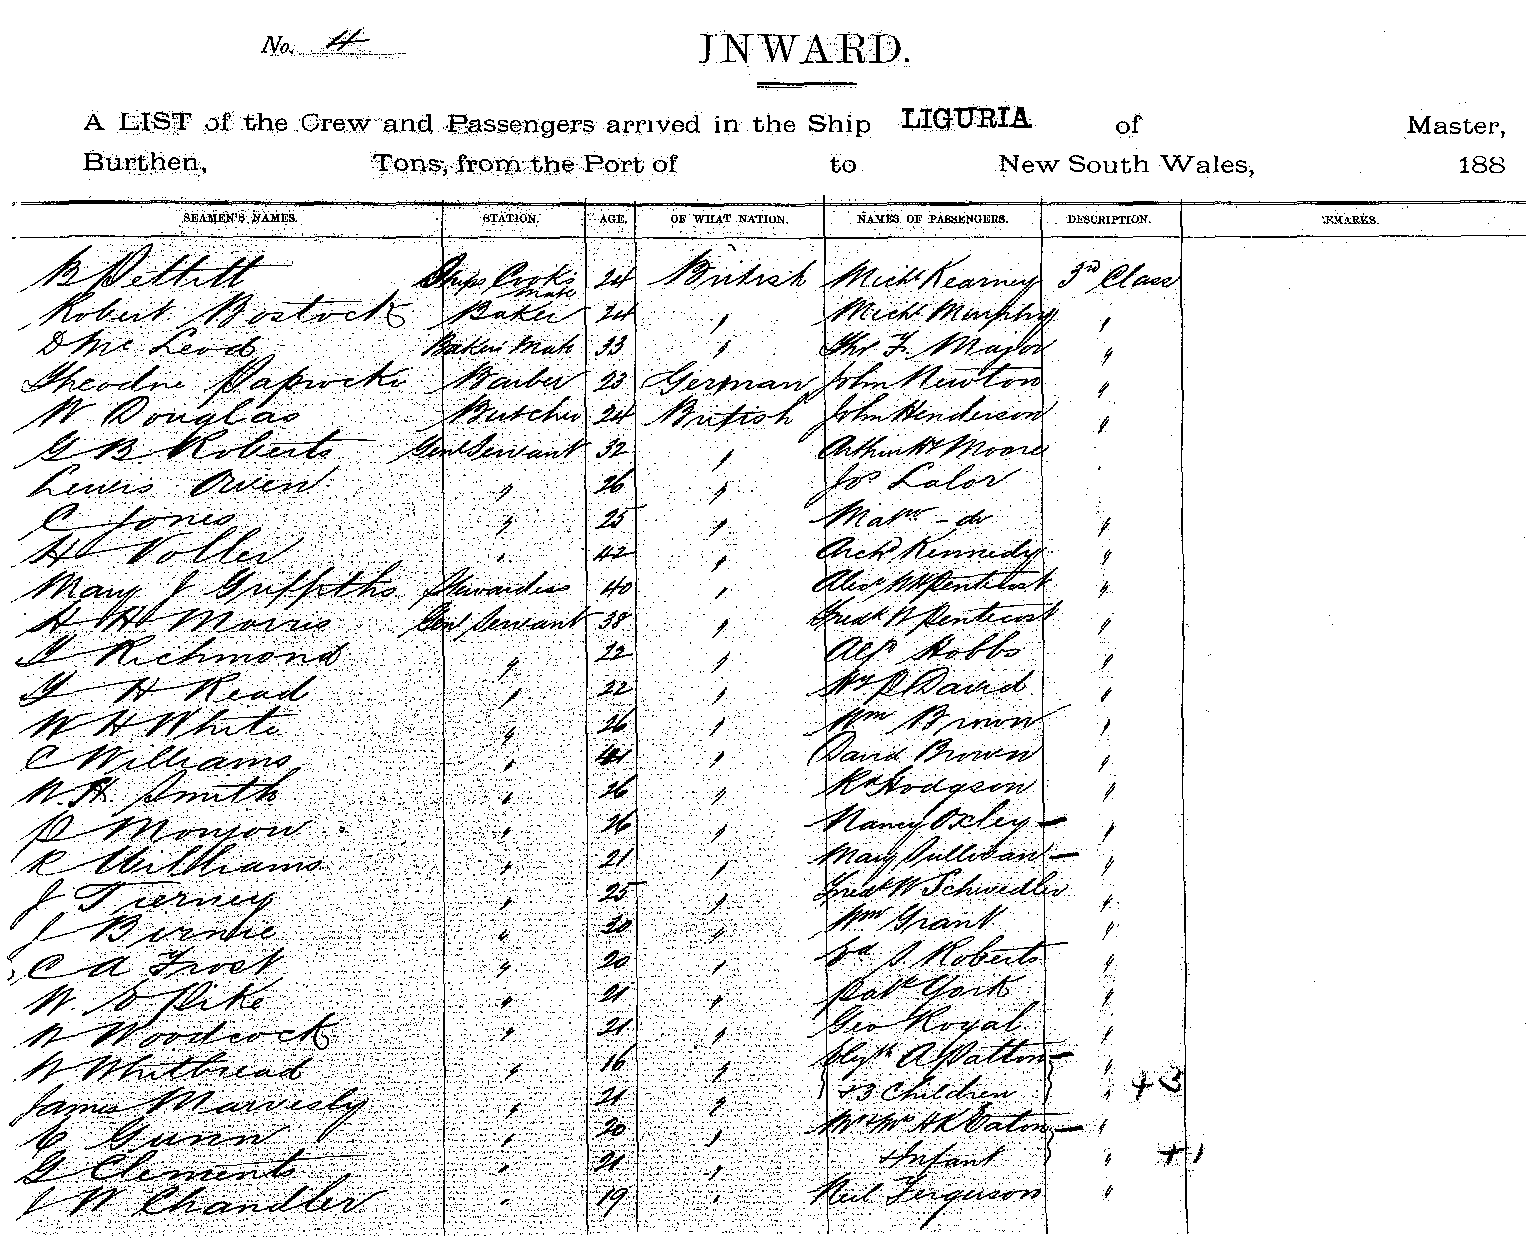 No. 4
INWARD.
A LIST of the Crew and Passengers arrived in the Ship LIGURIA of Master,
Burthen, Tons, from the Port of to New South Wales, 188
SEAMEN'S NAMES. STATION. AGE. OF WHAT NATION. NAMES OF PASSENGERS. DESCRIPTION. REMARKS.
B Pettitt Ships Cooks mate 24 British Michl Kearney 3rd Class
Robert Bostock Baker 24 " Michl Murphy "
D McLeod Bakers Mate 33 " Thos F. Major "
Theodre Barber 23 German John Newton "
W Douglas Butcher 24 British John Henderson "
G B Roberts Genl Servant 32 " Arthur Moore
Lewis Owen " 26 " Jos Lalor
C Jones " 25 " - do "
H Voller " 42 " Archd Kennedy "
Mary J Griffiths Stewardess 40 " Alexr W Pentecost "
H H Morris Genl Servant 38 " Fredk W Pentecost "
T Richmond " 22 " Alf Hobbs "
T H Read " 22 " Wm P David "
W H White " 26 " Wm Brown "
C Williams " 41 " David Brown "
W. H. Smith " 26 " Hodgson "
P " 26 " Nancy Oxley - "
R Williams " 21 " Mary Sullivan - "
J Tierney " 25 " Fredk W Schwedler "
J Birnie " 20 " Wm Grant "
C A Frost " 20 " Ed S Roberts "
W. D Pike " 21 " Patk York "
W Woodcock " 21 " Geo Royal "
W Whitbread " 16 " A Patton - "
James " 21 " + 3 Children " + 3
C Gunn " 20 " Mr & Mrs H R Eaton - "
G Clements " 21 " + Infant " + 1
J W Chandler " 19 " Neil Ferguson "